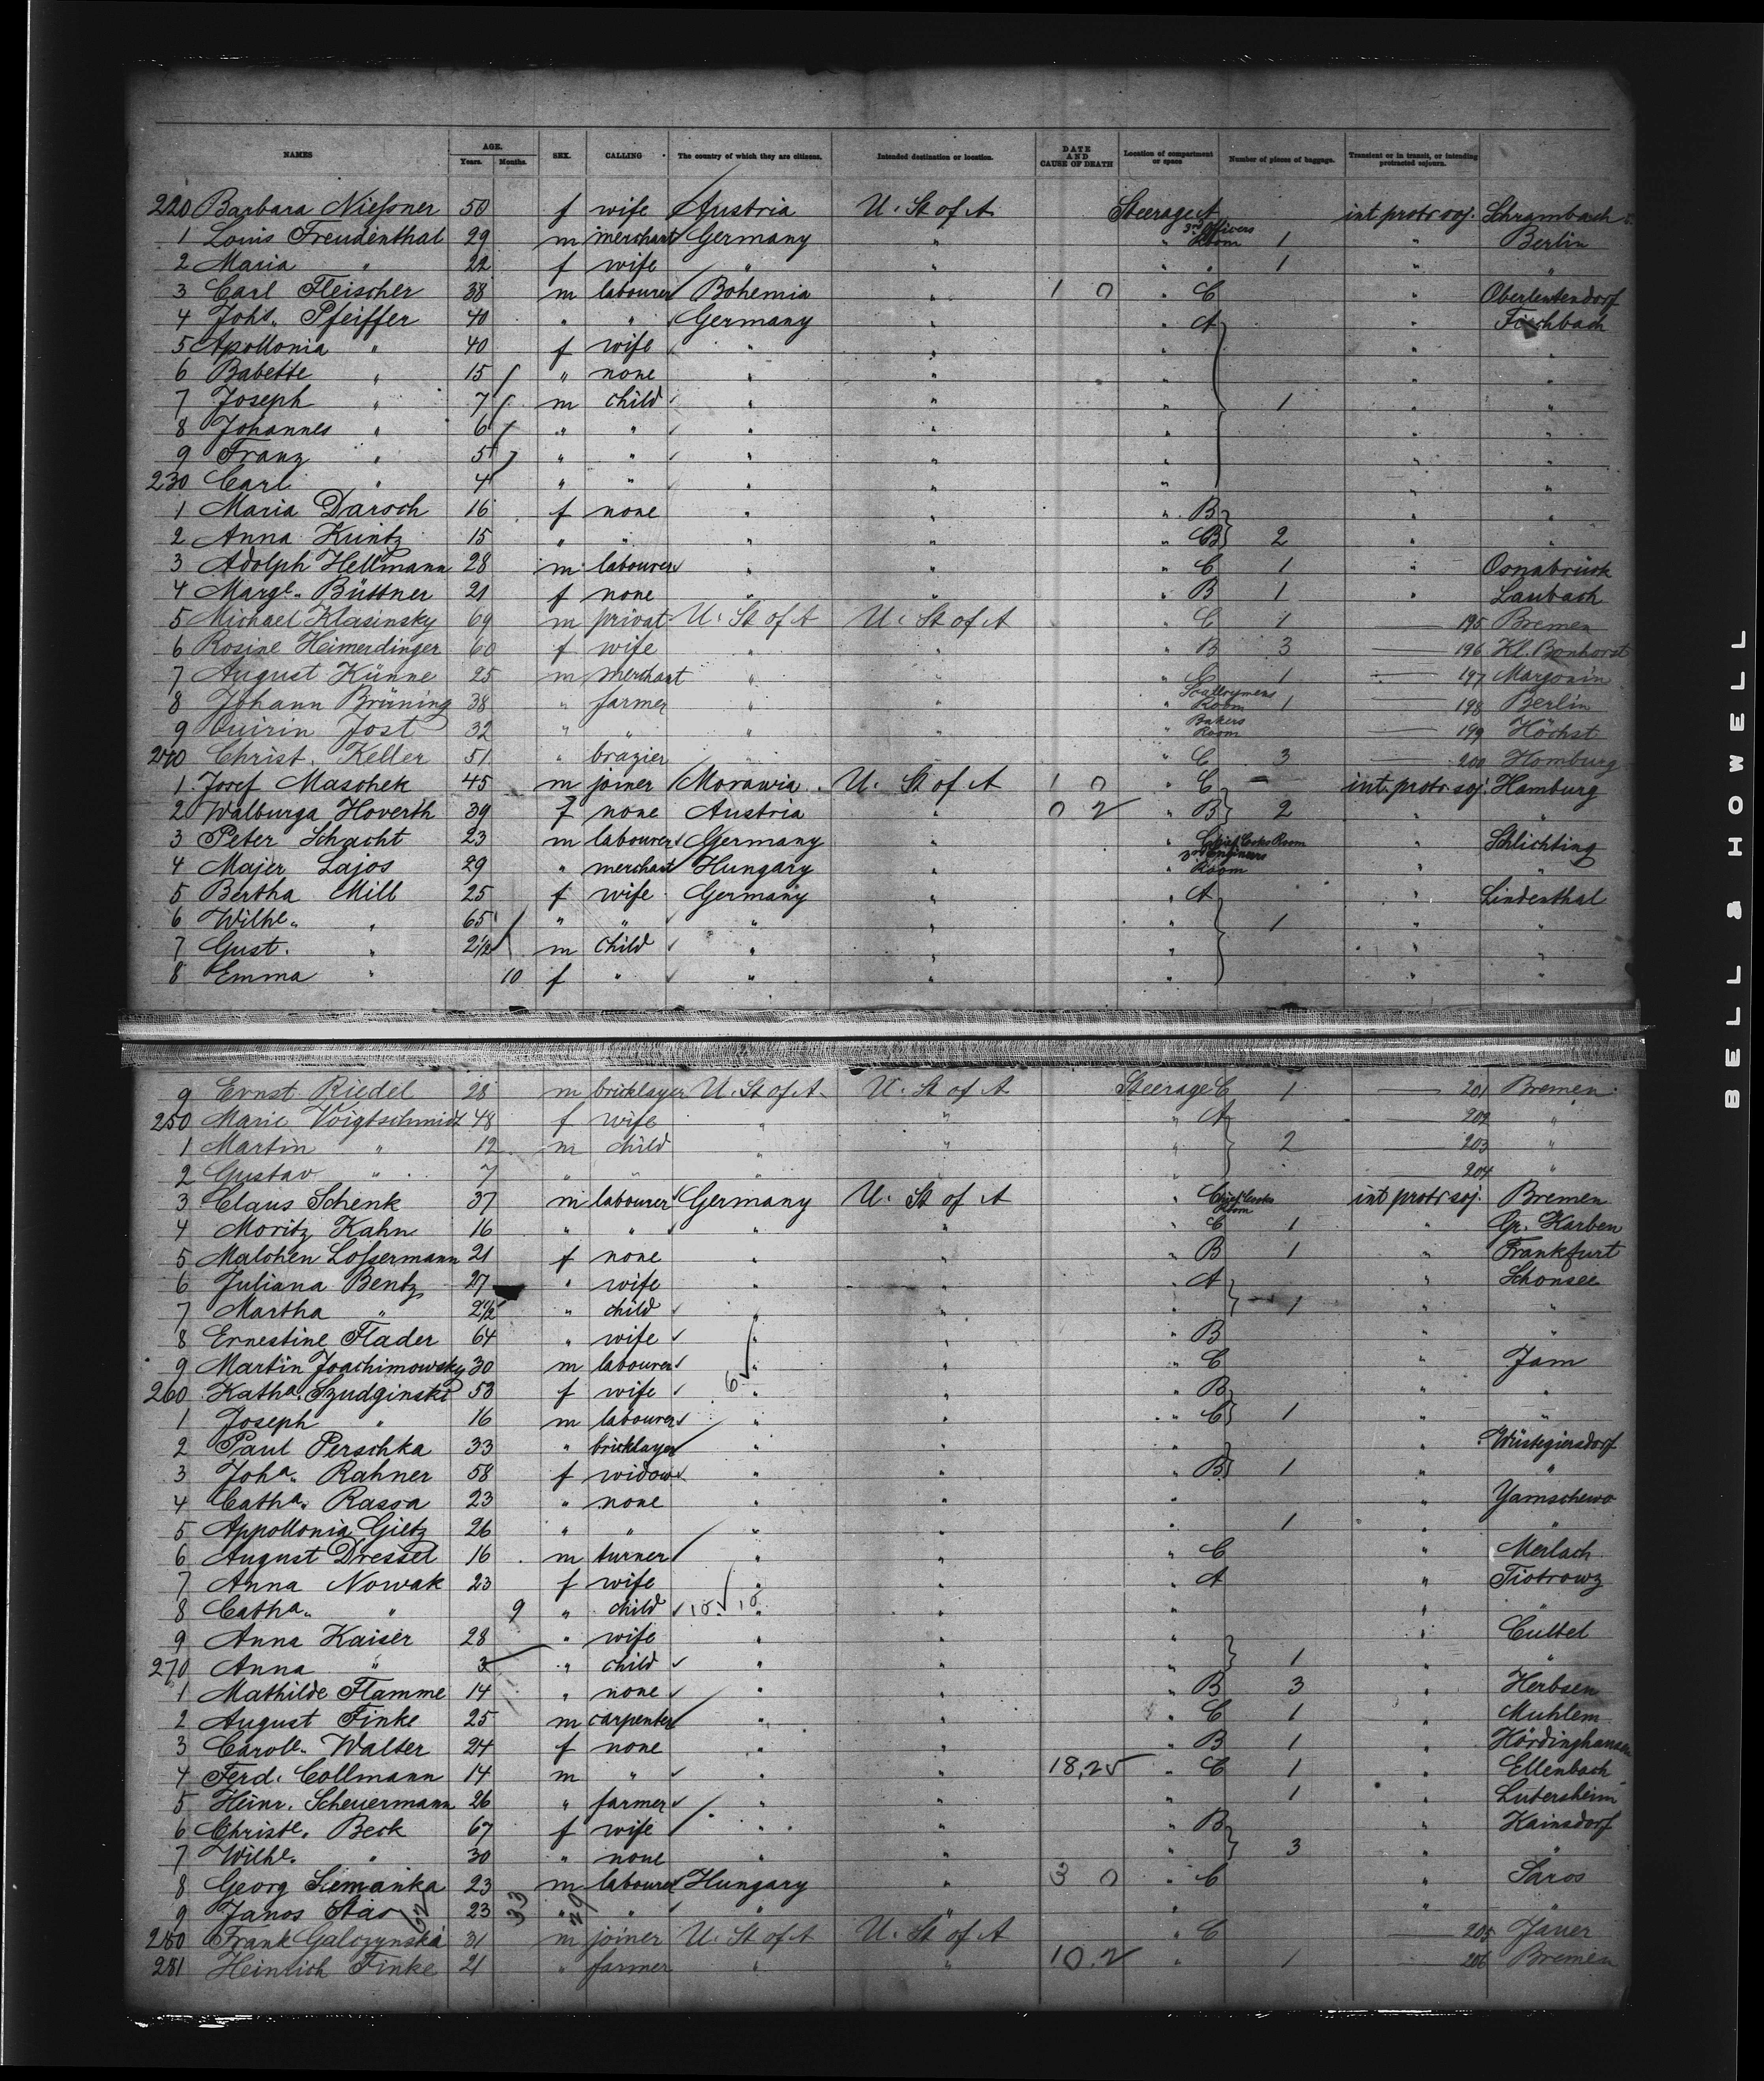 NAMES AGE. Years. Months. SEX. CALLING The country of which they are citizens. Intended destination or location. DATE AND CAUSE OF DEATH Location of compartment or space Number of pieces of baggage. Transient or in transit, or intending protracted sojourn.
220 Barbara Nießner 50 f wife Austria U. St of A Steerage A int protr soj. Schrambach
1 Louis Freudenthal 29 m merchant Germany " " 3rd Officers Room 1 " Berlin
2 Maria " 22 f wife " " " " 1 " "
3 Carl Fleischer 38 m labourer Bohemia " 1 0 " C " Oberleutendorf
4 Johs. Pfeiffer 40 " " Germany " " A " Fischbach
5 Apollonia " 40 f wife " " " " "
6 Babette " 15 " none " " " " "
7 Joseph " 7 m child " " " 1 " "
8 Johannes " 6 " " " " " " "
9 Franz " 5 " " " " " " "
230 Carl " 4 " " " " " " "
1 Maria Darsch 16 f none " " " B " "
2 Anna Kuntz 15 " " " " " B 2 " "
3 Adolph Hellmann 28 m labourer " " " C 1 " Osnabrück
4 Margt. Büttner 21 f none " " " B 1 " Laubach
5 Michael Klasinsky 69 m privat U. St of A U. St of A " C 1 195 Bremen
6 Rosine Heimerdinger 60 f wife " " " B 3 196 Kl. Bonhorst
7 August Künne 25 m merchant " " " C 1 197 Margonin
8 Johann Brüning 38 " farmer " " " Scullerymens Room 1 198 Berlin
9 Quirin Jost 32 " " " " " Bakers Room 199 Höchst
240 Christ. Keller 51 " brazier " " " C 3 200 Homburg
1 Josef Maschek 45 m joiner Morawia U. St of A 1 0 " C - int protr soj. Hamburg
2 Walburga Hoverth 39 f none Austria " 0 2 " B 2 " "
3 Peter Schacht 23 m labourer Germany " " Chief Cooks Room " Schlichting
4 Majer Lajos 29 " merchant Hungary " 3rd Engineers Room " "
5 Bertha Mill 25 f wife Germany " " A " Lindenthal
6 Wilhe. " 65 " " " " " 1 " "
7 Gust. " 2 1/2 m child " " " " "
8 Emma " 10 f " " " " " "
9 Ernst Riedel 28 m bricklayer U. St of A. U. St of A Steerage C 1 201 Bremen
250 Marie Voigtschmidt 48 f wife " " " A 202 "
1 Martin " 12 m child " " " 2 203 "
2 Gustav " 7 " " " " " 204 "
3 Claus Schenk 37 m labourer Germany U. St of A " Chief Cooks Room int protr soj. Bremen
4 Moritz Kahn 16 " " " " " C 1 " Gr. Karben
5 Malchen Loßermann 21 f none " " " B 1 " Frankfurt
6 Juliana Bentz 27 " wife " " " A " Schonsee
7 Martha " 2 1/2 " child " " " 1 " "
8 Ernestine Flader 64 " wife " " " B " "
9 Martin Joachimowsky 30 m labourer " " " C " Jam
260 Katha. Szudginski 53 f wife 6 " " " B " "
1 Joseph " 16 m labourer " " " C 1 " "
2 Paul Perschka 33 " bricklayer " " " " Wüstegiersdorf
3 Joha. Rahner 58 f widow " " " B 1 " "
4 Catha. Rassa 23 " none " " " " Yamschewo
5 Appollonia Gietz 26 " " " " " 1 " "
6 August Dressel 16 m turner " " " C " Merlach
7 Anna Nowak 23 f wife " " " A " Tiotrowz
8 Catha. " 9 " child " " " " "
9 Anna Kaiser 28 " wife " " " " Cuttel
270 Anna " 3 " child " " " 1 " "
1 Mathilde Flamme 14 " none " " " B 3 " Herbsen
2 August Finke 25 m carpenter " " " C 1 " Muhlem
3 Carole. Walter 24 f none " " " B 1 " Hördinghausen
4 Ferd. Collmann 14 m " " " 18,25 " C 1 " Ellenbach
5 Heinr. Scheuermann 26 " farmer " " " 1 " Lutersheim
6 Christe. Beck 67 f wife " " " B " Kainsdorf
7 Wilhe. " 30 " none " " " 3 " "
8 Georg Siemanka 23 m labourer Hungary " 3 0 " C " Saros
9 Janos Stas 23 33 " 29 " " " " " "
280 Frank Galczynska 31 m joiner U. St of A U. St of A " C 205 Jauer
281 Heinrich Finke 21 " farmer " " 10.2 " 1 206 Bremen
BELL & HOWELL